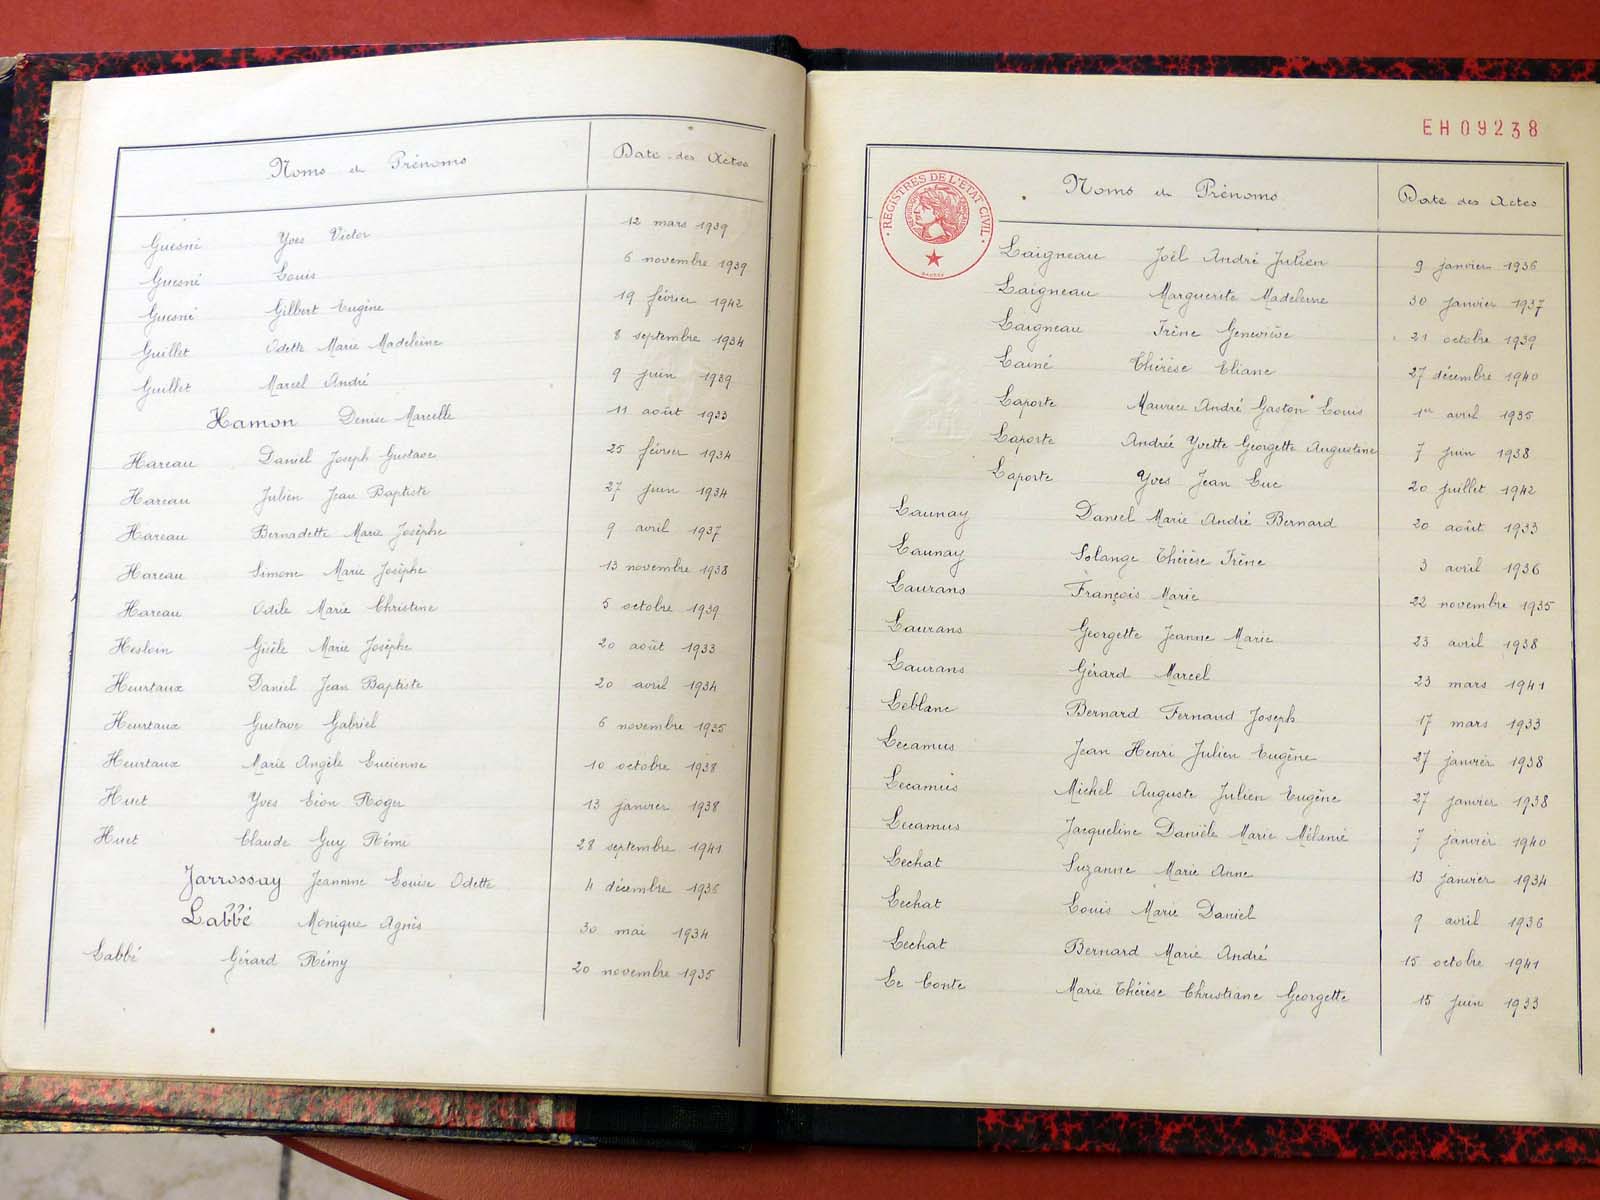 Noms et Prénoms Date des Actes
Guesné Yves Victor 12 mars 1939
Guesné Louis 6 novembre 1939
Guesné Gilbert Eugène 19 février 1942
Guillet Odette Marie Madeleine 8 septembre 1934
Guillet Marcel André 9 juin 1939
Hamon Denise Marcelle 11 août 1933
Hareau Daniel Joseph Gustave 25 février 1934
Hareau Julien Jean Baptiste 27 juin 1934
Hareau Bernadette Marie Josèphe 9 avril 1937
Hareau Simone Marie Josèphe 13 novembre 1938
Hareau Odile Marie Christine 5 octobre 1939
Hesloin Gisèle Marie Josèphe 20 août 1933
Heurtaux Daniel Jean Baptiste 20 avril 1934
Heurtaux Gustave Gabriel 6 novembre 1935
Heurtaux Marie Angèle Lucienne 10 octobre 1938
Huet Yves Léon Roger 13 janvier 1938
Huet Claude Guy Rémi 28 septembre 1941
Jarrossay Jeannine Louise Odette 4 décembre 1936
Labbé Monique Agnès 30 mai 1934
Labbé Gérard Rémy 20 novembre 1935
EH09238
REGISTRES DE L'ETAT CIVIL
Noms et Prénoms Date des Actes
Laigneau Joël André Julien 9 janvier 1936
Laigneau Marguerite Madeleine 30 janvier 1937
Laigneau Irène Geneviève 21 octobre 1939
Lainé Thérèse Eliane 27 décembre 1940
Laporte Maurice André Gaston Louis 1er avril 1935
Laporte Andrée Yvette Georgette Augustine 7 juin 1938
Laporte Yves Jean Luc 20 juillet 1942
Launay Daniel Marie André Bernard 20 août 1933
Launay Solange Thérèse Irène 3 avril 1936
Laurans François Marie 22 novembre 1935
Laurans Georgette Jeanne Marie 23 avril 1938
Laurans Gérard Marcel 23 mars 1941
Leblanc Bernard Fernand Joseph 17 mars 1933
Lecamus Jean Henri Julien Eugène 27 janvier 1938
Lecamus Michel Auguste Julien Eugène 27 janvier 1938
Lecamus Jacqueline Danièle Marie Mélanie 7 janvier 1940
Lechat Suzanne Marie Anne 13 janvier 1934
Lechat Louis Marie Daniel 9 avril 1936
Lechat Bernard Marie André 15 octobre 1941
Le Conte Marie Thérèse Christiane Georgette 15 juin 1933